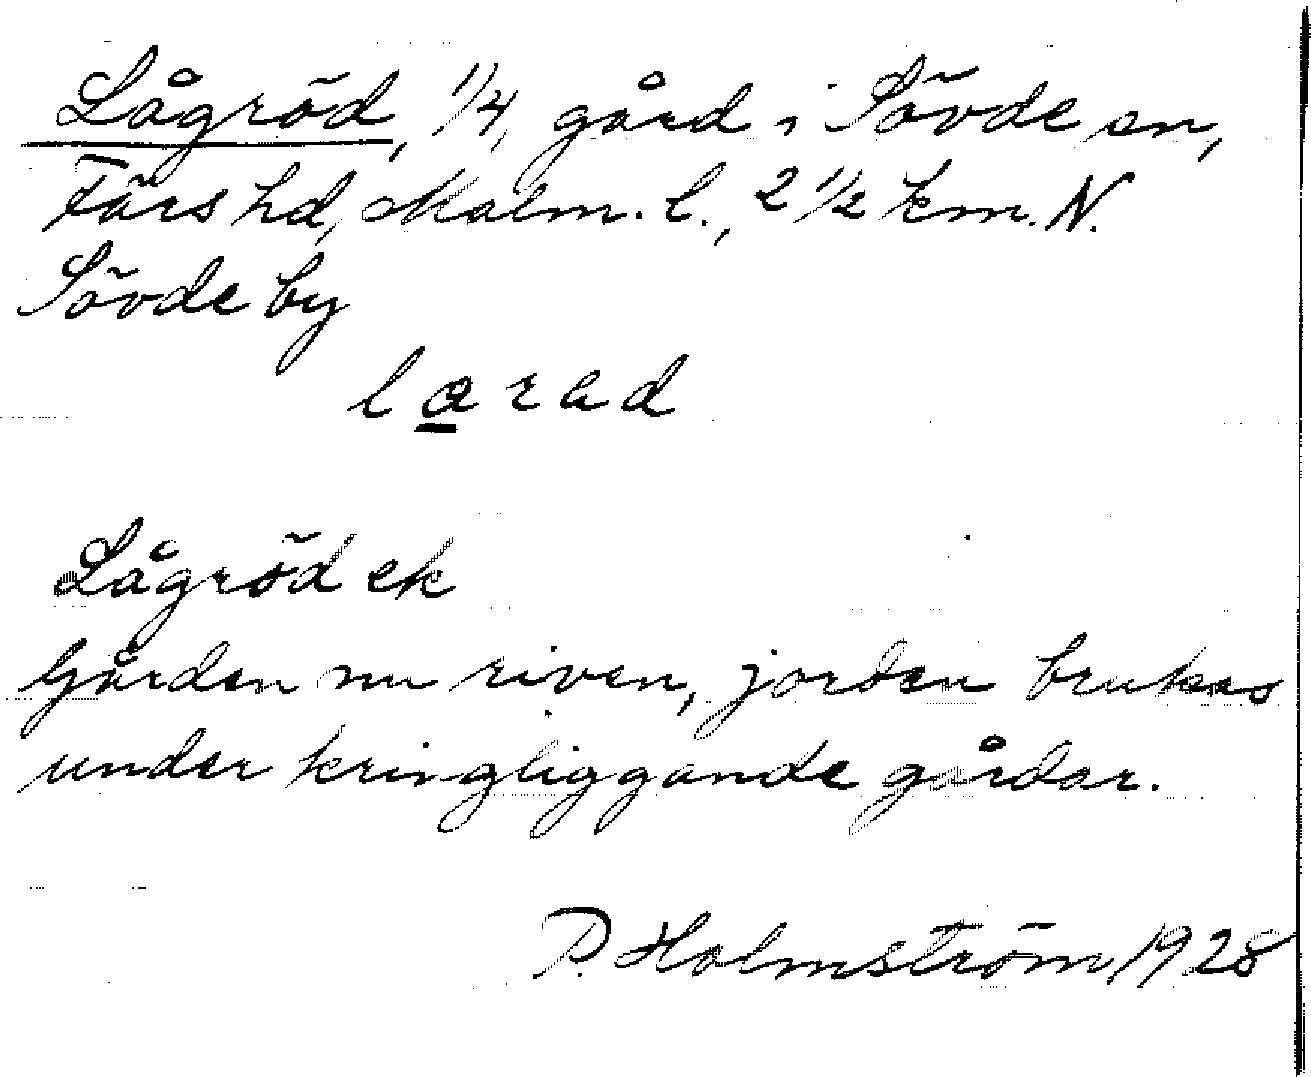 Lågröd, 1/4, gård i Sövde sn,
Färs hd, Malm. l., 2 1/2 km. N.
Sövde by
larad
Lågröd ek
Gården nu riven, jorden brukas
under kringliggande gårdar.
P. Holmström 1928